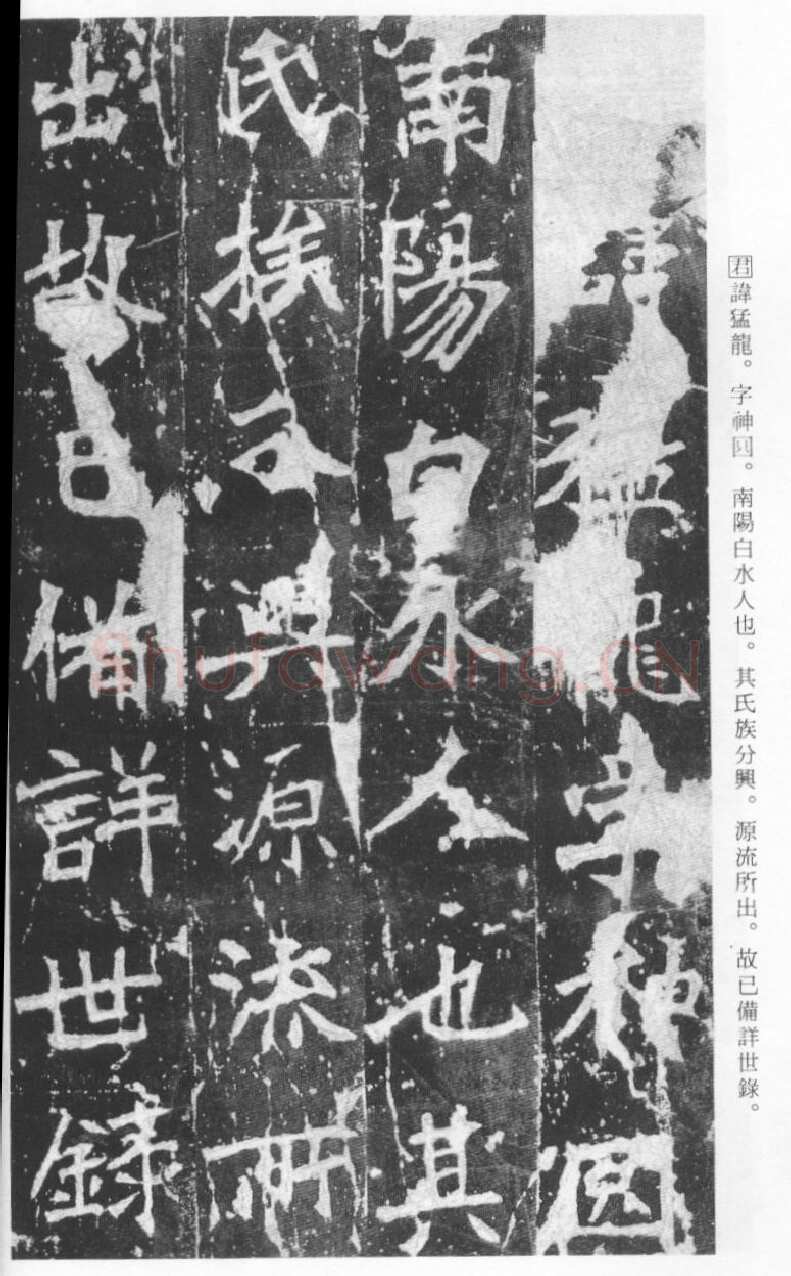 諱猛龍字神囧
南陽白水人也其
氏族分興源流所
出故已備詳世錄
君諱猛龍。字神囧。南陽白水人也。其氏族分興。源流所出。故已備詳世錄。
Shufawang.CN